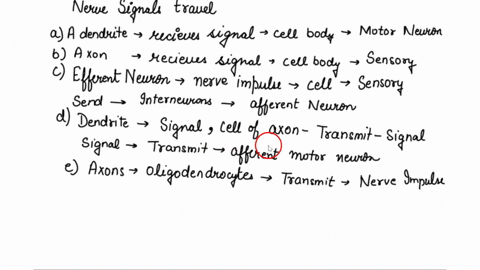 Nerve Signals travel
a) A dendrite → recieves signal → cell body → Motor Neuron
b) Axon → recieves signal → cell body → Sensory
c) Efferent Neuron → nerve impulse → cell → Sensory
Send → Interneurons → afferent Neuron
d) Dendrite → Signal, cell of axon - Transmit - Signal
Signal → Transmit → afferent motor neuron
e) Axons → oligodendrocytes → Transmit → Nerve Impulse